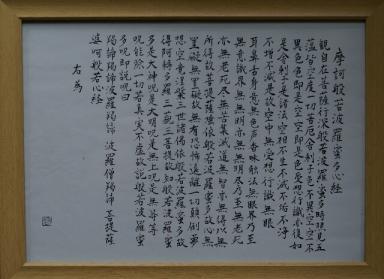 摩訶般若波羅蜜多心経
観自在菩薩行深般若波羅蜜多時照見五
蘊皆空度一切苦厄舎利子色不異空空不
異色色即是空空即是色受想行識亦復如
是舎利子是諸法空相不生不滅不垢不浄
不増不減是故空中無色無受想行識無眼
耳鼻舌身意無色声香味触法無眼界乃至
無意識界無無明亦無無明尽乃至無老死
亦無老死尽無苦集滅道無智亦無得以無
所得故菩提薩埵依般若波羅蜜多故心無
罣礙無罣礙故無有恐怖遠離一切顛倒夢
想究竟涅槃三世諸佛依般若波羅蜜多故
得阿耨多羅三藐三菩提故知般若波羅蜜
多是大神呪是大明呪是無上呪是無等等
呪能除一切苦真実不虚故説般若波羅蜜
多呪即説呪曰
羯諦羯諦波羅羯諦 波羅僧羯諦 菩提薩
婆訶般若心経
右為